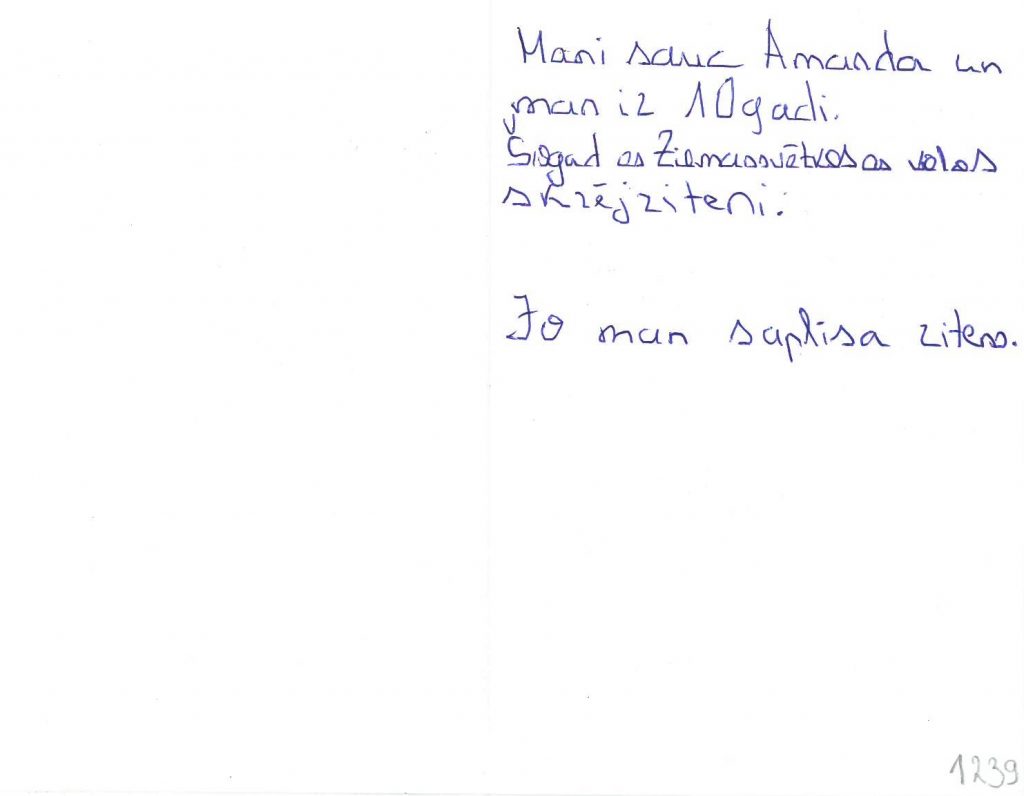 Mani sauc Amanda un
man iz 10 gadi.
Siogad es Ziemassvētkos es velos
skrējziteni.
Jo man saplisa zitens.
1239